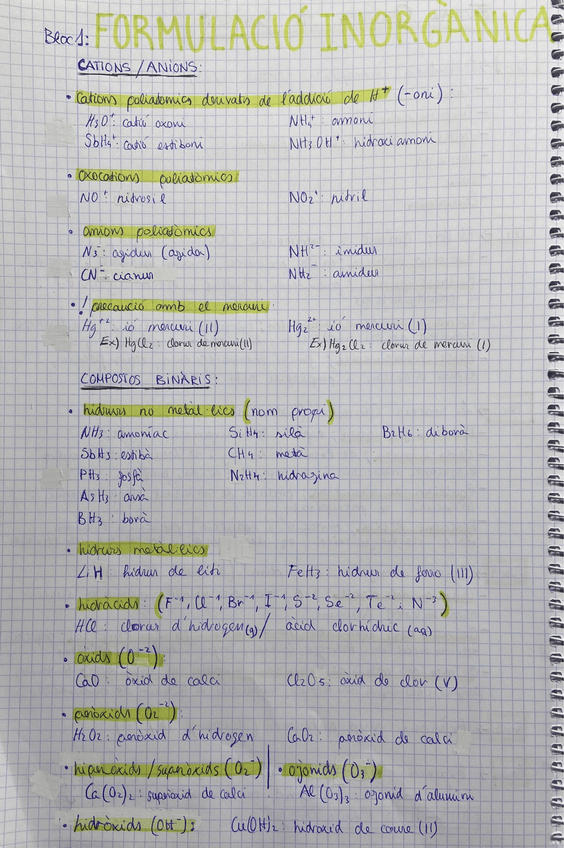 Bloc 1: FORMULACIÓ INORGÀNICA
CATIONS / ANIONS:
• Cations poliatòmics derivats de l'addició de H⁺ (-oni):
H₃O⁺: catió oxoni NH₄⁺: amoni
SbH₄⁺: catió estiboni NH₃OH⁺: hidroxiamoni
• oxocations poliatòmics
NO⁺: nitrosil NO₂⁺: nitril
• anions poliatòmics
N₃⁻: azidur (azida) NH²⁻: imidur
CN⁻: cianur NH₂⁻: amidur
• ! precaució amb el mercuri:
Hg⁺²: ió mercuri (II) Hg₂²⁺: ió mercuri (I)
Ex) HgCl₂: clorur de mercuri (II) Ex) Hg₂Cl₂: clorur de mercuri (I)
COMPOSTOS BINÀRIS:
• hidrurs no metàl·lics (nom propi)
NH₃: amoníac SiH₄: silà B₂H₆: diborà
SbH₃: estibà CH₄: metà
PH₃: fosfà N₂H₄: hidrazina
AsH₃: arsà
BH₃: borà
• hidrurs metàl·lics
LiH hidrur de liti FeH₃: hidrur de ferro (III)
• hidràcids: (F⁻¹, Cl⁻¹, Br⁻¹, I⁻¹, S⁻², Se⁻², Te⁻² i N⁻³)
HCl: clorur d'hidrogen (g) / àcid clorhídric (aq)
• òxids (O⁻²):
CaO: òxid de calci Cl₂O₅: òxid de clor (V)
• peròxids (O₂⁻²):
H₂O₂: peròxid d'hidrogen CaO₂: peròxid de calci
• hiperòxids / superòxids (O₂⁻) • ozonids (O₃⁻)
Ca(O₂)₂: superòxid de calci Al(O₃)₃: ozonid d'alumini
• hidròxids (OH⁻): Cu(OH)₂: hidroxid de coure (II)